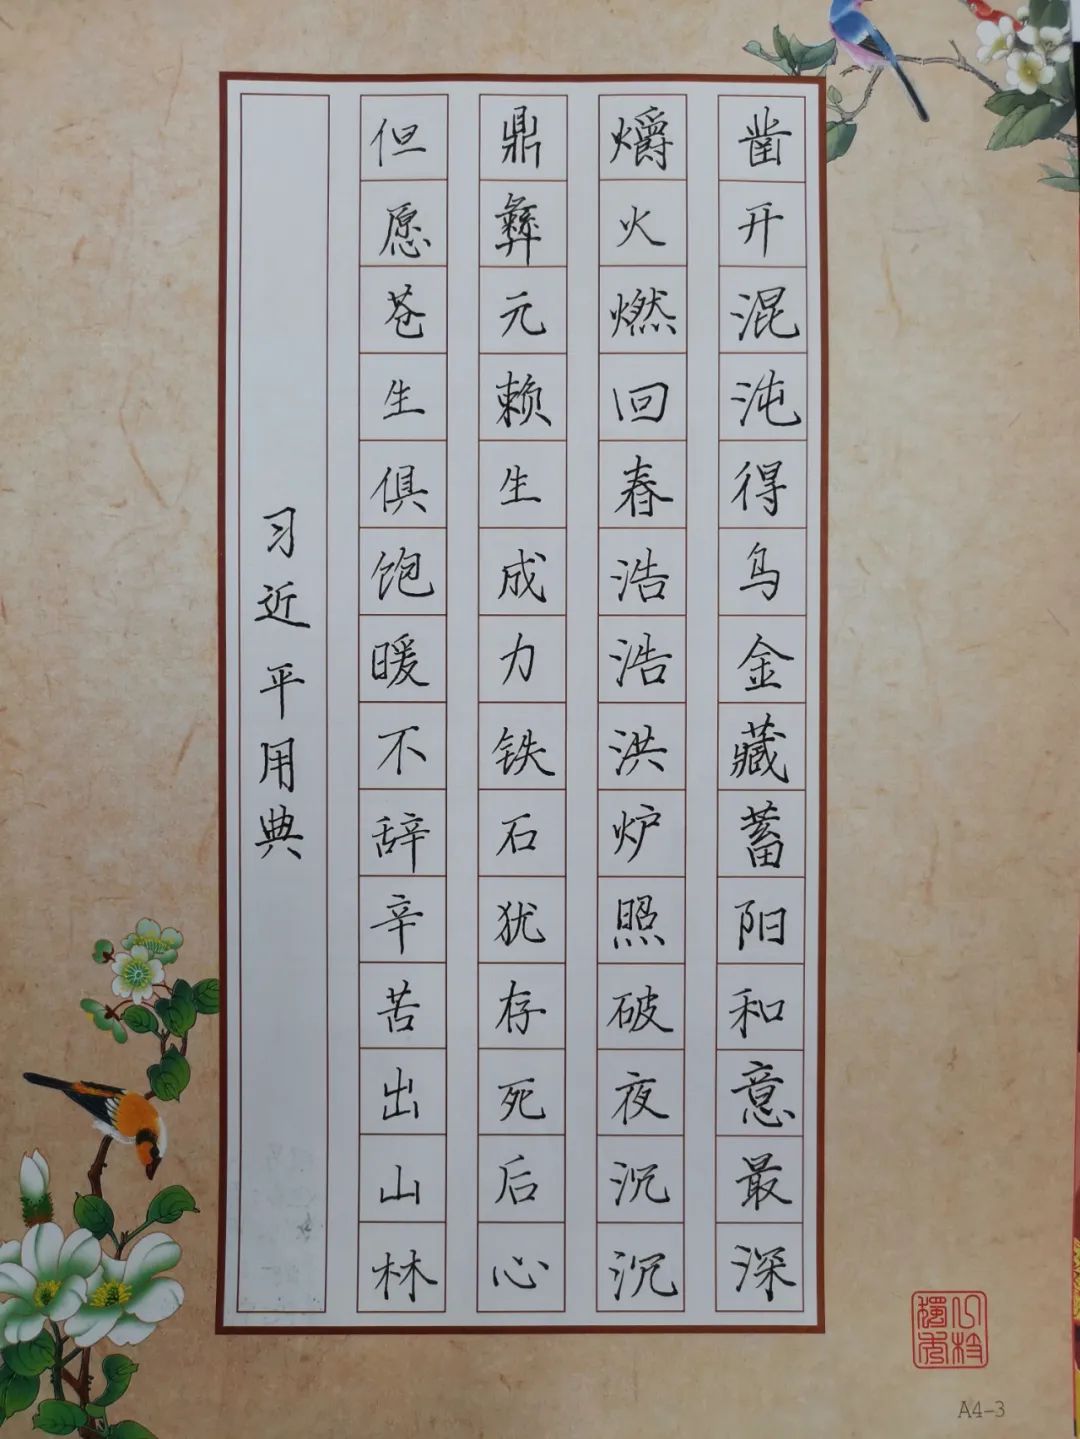 凿开混沌得乌金藏蓄阳和意最深
爝火燃回春浩浩洪炉照破夜沉沉
鼎彝元赖生成力铁石犹存死后心
但愿苍生俱饱暖不辞辛苦出山林
习近平用典
A4-3